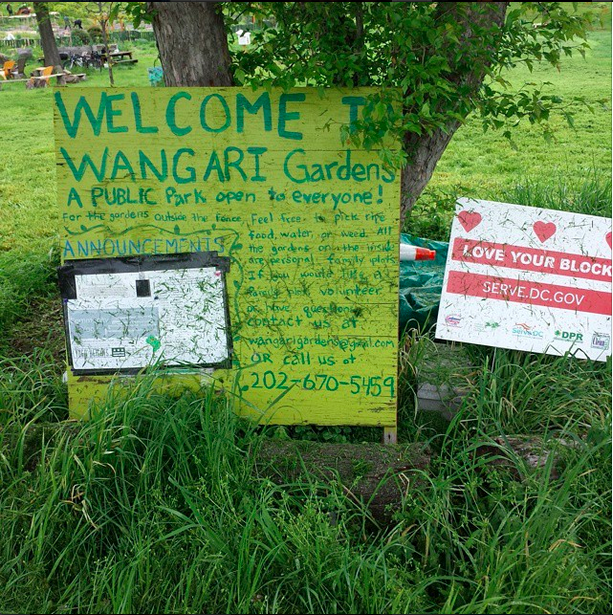 WELCOME TO
WANGARI Gardens
A PUBLIC Park open to everyone!
For the gardens outside the fence feel free to pick ripe
food, water, or weed. All
the gardens on the inside
are personal family plots
If you would like a
or have questions
contact us at
wangarigardens@gmail.com
OR call us at
202-670-5459
ANNOUNCEMENTS
LOVE YOUR BLOCK
SERVE.DC.GOV
ServeDC
DPR